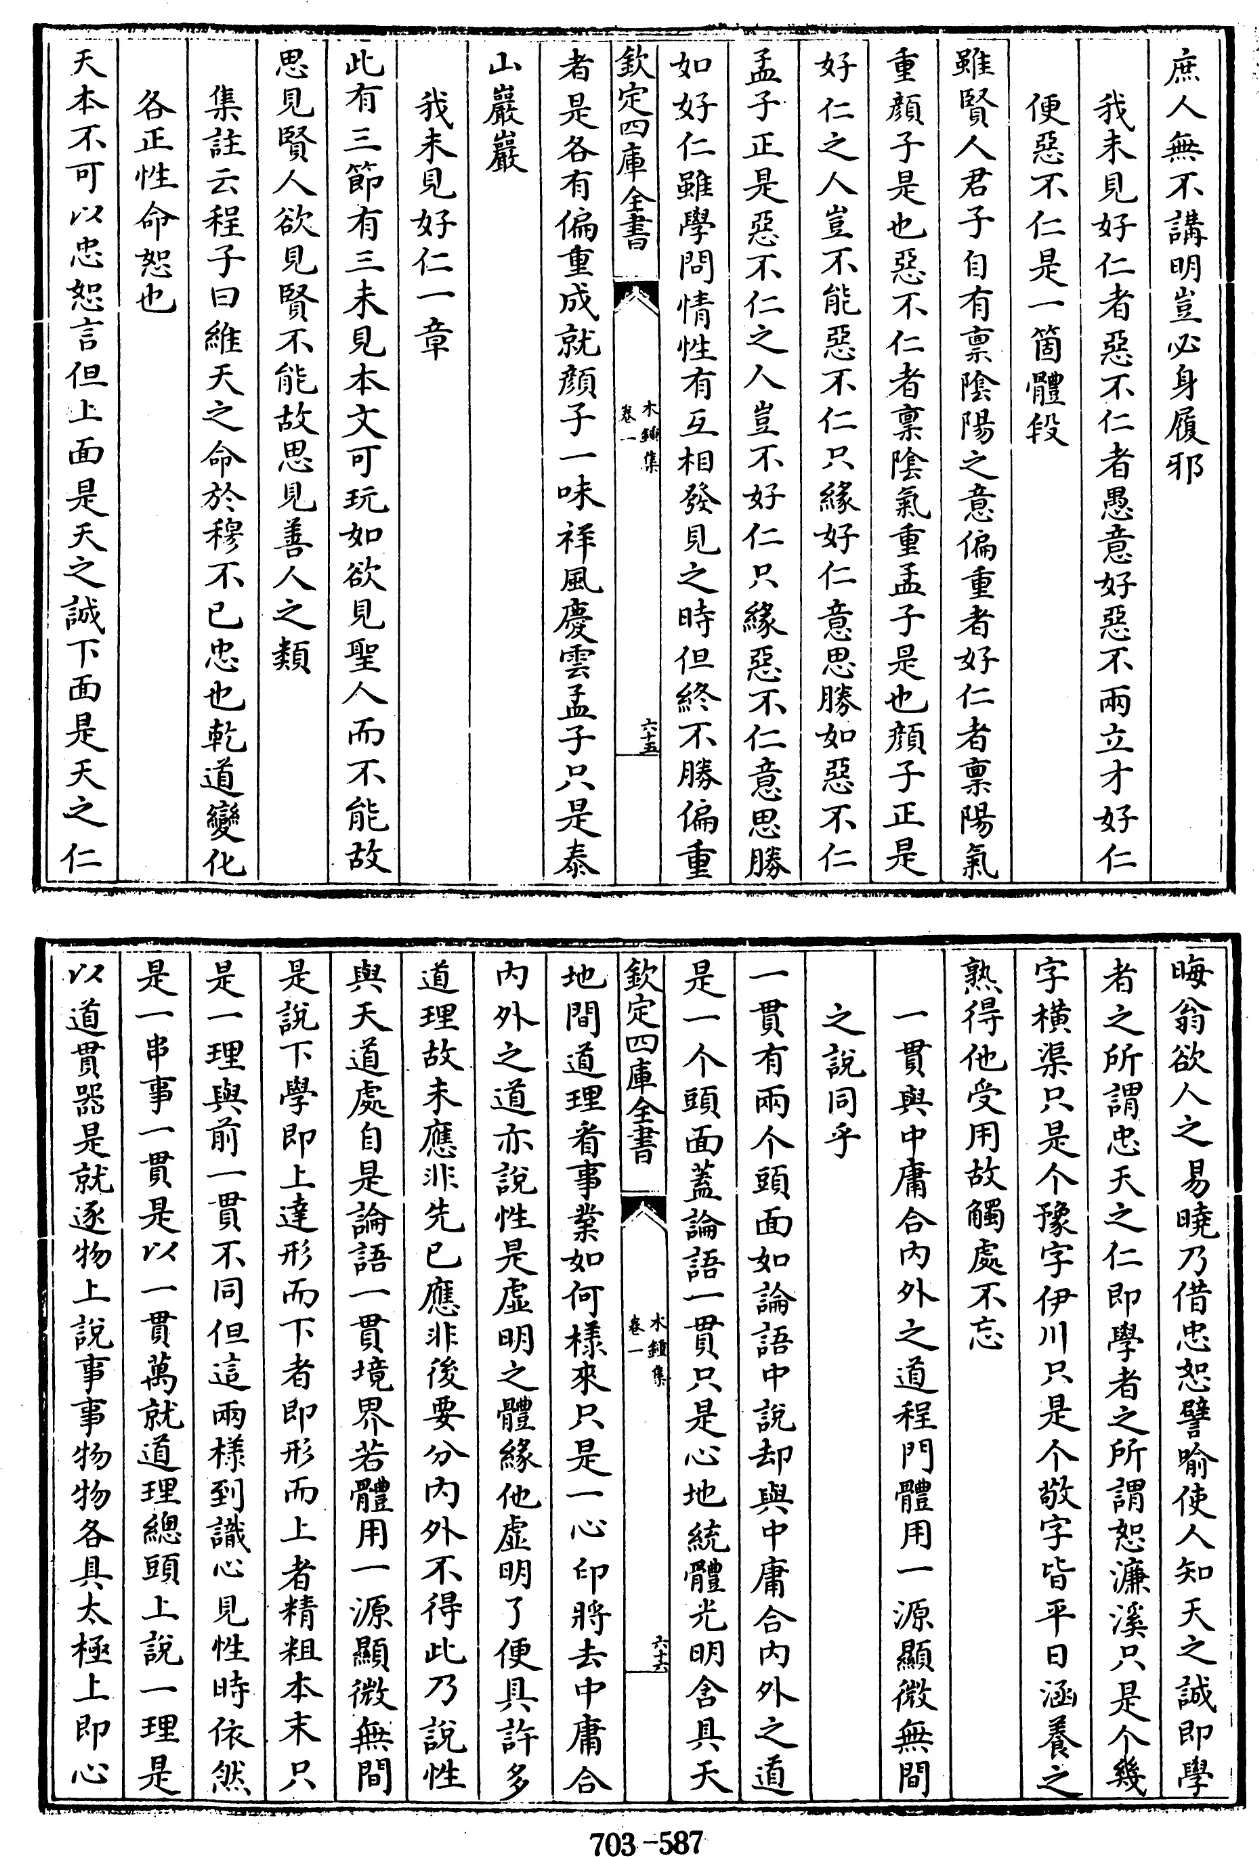 庶人無不講明豈必身履邪
我未見好仁者惡不仁者愚意好惡不兩立才好仁
便惡不仁是一箇體段
雖賢人君子自有禀陰陽之意偏重者好仁者禀陽氣
重顔子是也惡不仁者禀陰氣重孟子是也顔子正是
好仁之人豈不能惡不仁只緣好仁意思勝如惡不仁
孟子正是惡不仁之人豈不好仁只緣惡不仁意思勝
如好仁雖學問情性有互相發見之時但終不勝偏重
欽定四庫全書
木鐘集
卷一
六十五
者是各有偏重成就顔子一味祥風慶雲孟子只是泰
山巖巖
我未見好仁一章
此有三節有三未見本文可玩如欲見聖人而不能故
思見賢人欲見賢不能故思見善人之類
集註云程子曰維天之命於穆不已忠也乾道變化
各正性命恕也
天本不可以忠恕言但上面是天之誠下面是天之仁
晦翁欲人之易曉乃借忠恕譬喻使人知天之誠即學
者之所謂忠天之仁即學者之所謂恕濂溪只是个幾
字橫渠只是个豫字伊川只是个敬字皆平日涵養之
熟得他受用故觸處不忘
一貫與中庸合内外之道程門體用一源顯微無間
之說同乎
一貫有兩个頭面如論語中說却與中庸合内外之道
是一个頭面蓋論語一貫只是心地統體光明含具天
欽定四庫全書
木鐘集
卷一
六十六
地間道理看事業如何樣來只是一心印將去中庸合
内外之道亦說性是虚明之體緣他虚明了便具許多
道理故未應非先已應非後要分内外不得此乃說性
與天道處自是論語一貫境界若體用一源顯微無間
是說下學即上達形而下者即形而上者精粗本末只
是一理與前一貫不同但這兩樣到識心見性時依然
是一串事一貫是以一貫萬就道理總頭上說一理是
以道貫器是就逐物上說事事物物各具太極上即心
703-587